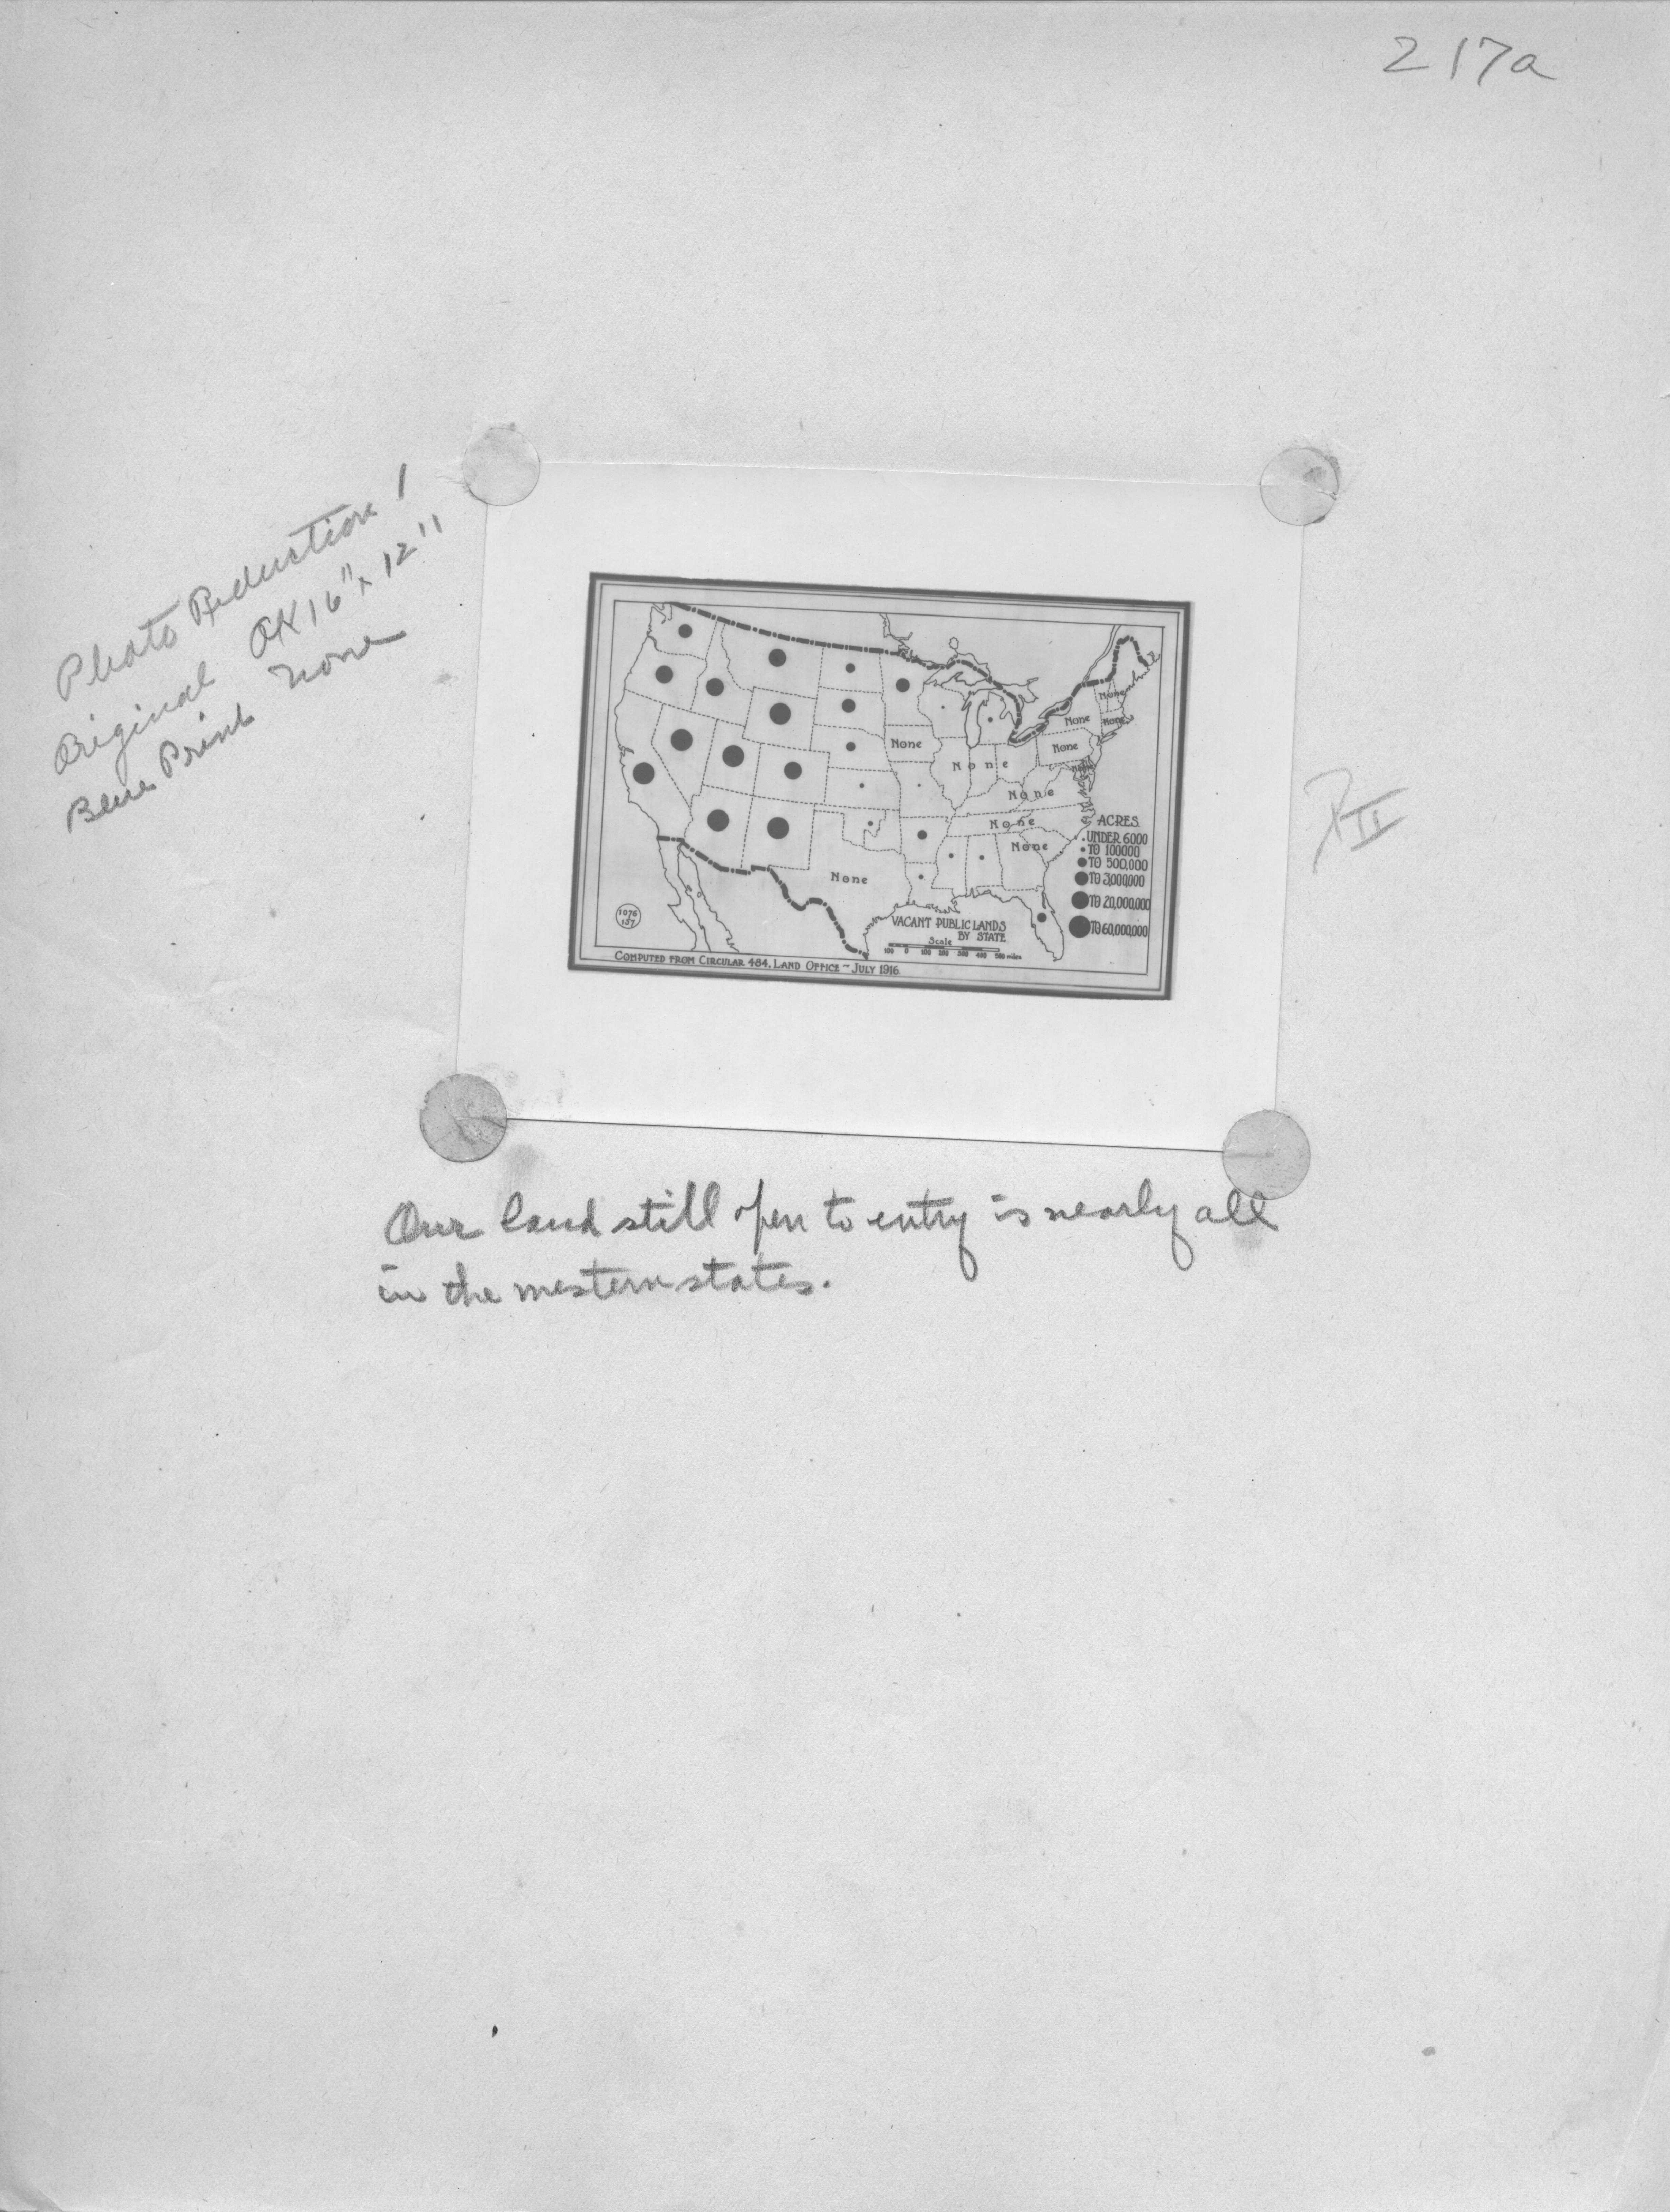 217a
Photo Reduction 1
Original OK 16" x 12"
Blue Print none
None
None
None
None
None
None
None
None
None
None
None
ACRES
UNDER 6000
TO 100000
TO 500,000
TO 3,000,000
TO 20,000,000
TO 60,000,000
1076
157
VACANT PUBLIC LANDS
BY STATE
Scale
100 0 100 200 300 400 500 miles
COMPUTED FROM CIRCULAR 484, LAND OFFICE ~ JULY 1916
II
Our land still open to entry is nearly all
in the western states.